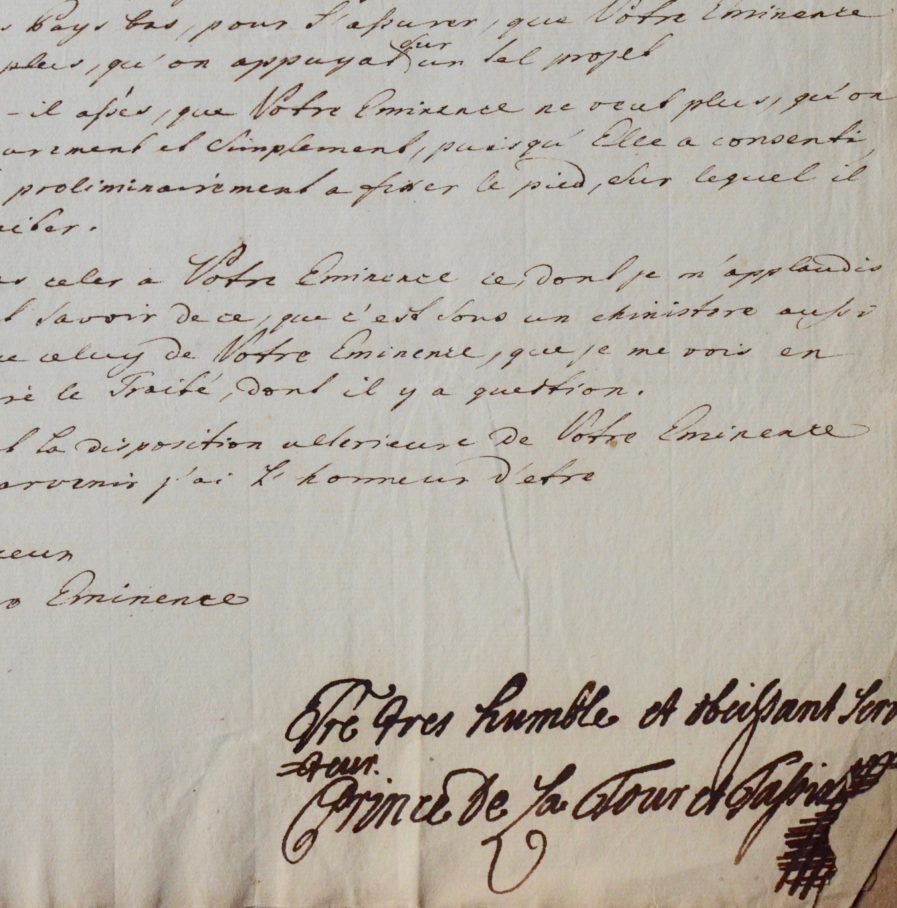 s Pays bas, pour s'assurer, que Votre Eminence
plus, qu'on appuyat sur un tel projet
-il assés, que Votre Eminence ne veut plus, qu'on
urement et simplement, puisqu'Elle a consenti,
proliminairément a fixer le pied, sur lequel il
iter.
celer a Votre Eminence ce, dont je m'applaudis
savoir de ce, que c'est sous un ministere aussi
ue celuy de Votre Eminence, que je me vois en
ré le Traité, dont il y a question.
la disposition ulterieure de Votre Eminence
arvenir j'ai l'honneur d'etre
neur
Eminence
Tré tres humble et obeissant Serv
=teur.
Prince de La Tour et Tassis